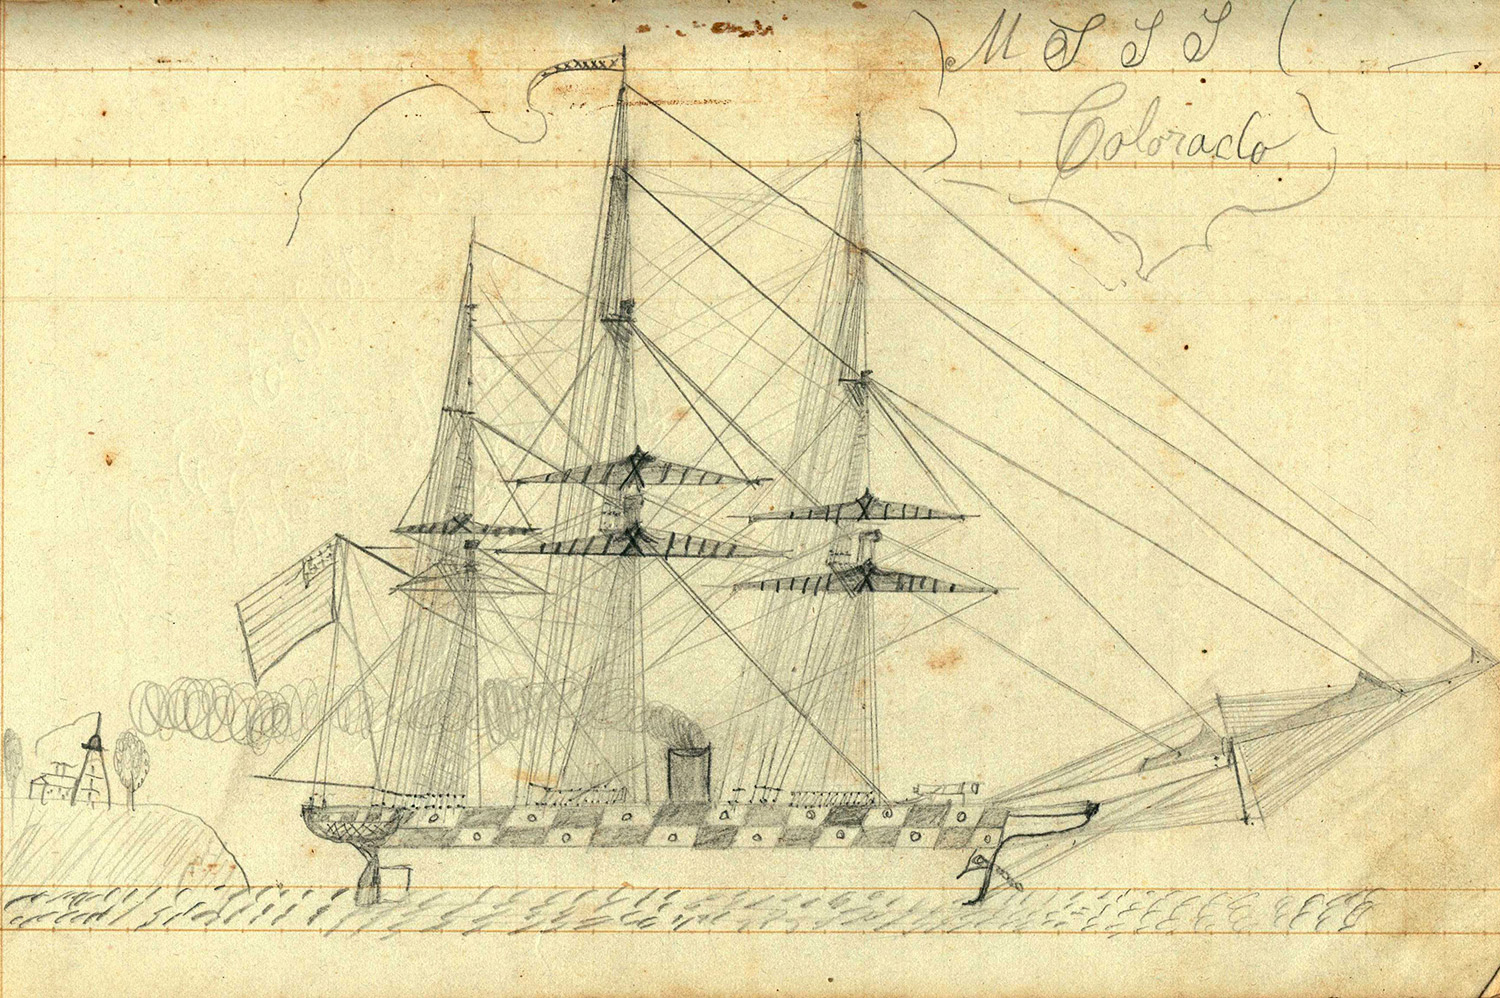 M S S S
Colorado